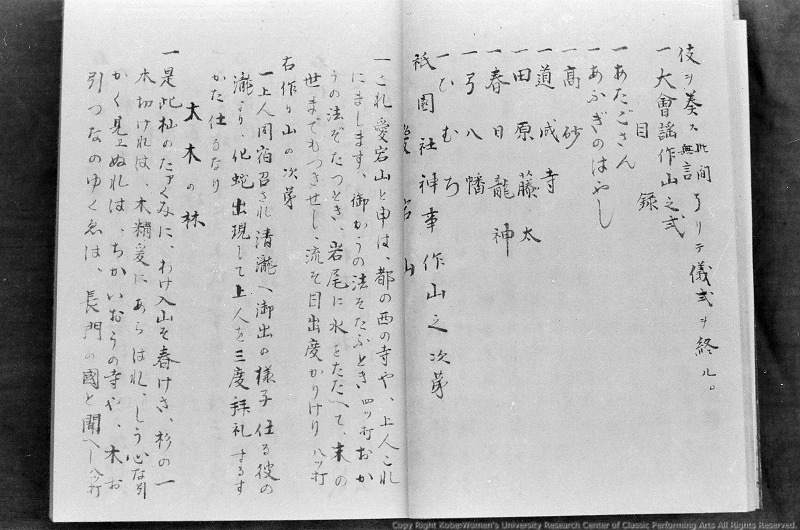 伎ヲ奏ス此間無言 了リテ儀式ヲ終ル。
一大會謡作山之式
目録
一あたごさん
一あふぎのはやし
一高砂
一道成寺
一田原藤太
一春日龍神
一弓八幡
一ひむろ
祇園社神事作山之次第
愛宕山
一これ愛宕山と申は、都の西の寺や、上人これ
にまします、御かうの法そたふとき、四ツ打おか
うの法ぞたつとき、岩尾に水をたたへて、末の
世までもつきせし、流そ目出度かりけり 八ッ打
右作り山の次第
一上人同宿召され清瀧へ御出の様子仕る彼の
瀧より、化蛇出現して上人を三度拝礼するす
かた仕るなり
大木の林
一是此杣のたくみに、わけ入山そ春けき、杉の一
木切けれは、木精爰にあらはれ、しう心な引
かく見上ぬれは、ちかいおうの寺や、木お
引つなのゆくゑは、長門の國と聞へし 八ッ打
Copy Right Kobe Women's University Research Center of Classic Performing Arts All Rights Reserved.